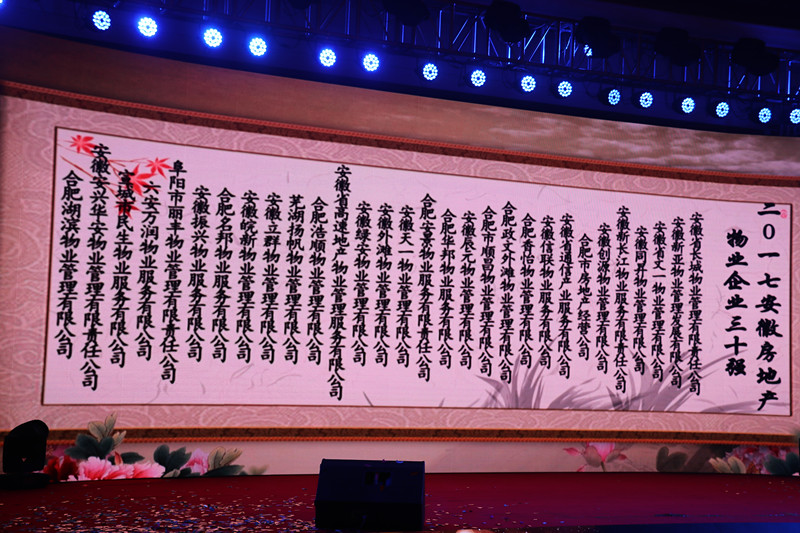 二〇一七安徽房地产
物业企业三十强
安徽省长城物业管理有限责任公司
安徽新亚物业管理发展有限公司
安徽省文一物业管理有限公司
安徽同昇物业管理有限公司
安徽新长江物业服务有限责任公司
安徽创源物业管理有限公司
合肥市房地产经营公司
安徽省通信产业服务有限公司
安徽信联物业服务有限公司
合肥香怡物业管理有限公司
合肥政文外滩物业管理有限公司
合肥市顺昌物业管理有限公司
安徽辰元物业管理有限公司
合肥华邦物业服务有限公司
合肥安景物业服务有限责任公司
安徽天一物业管理有限公司
安徽外滩物业管理有限公司
安徽孝安物业管理有限公司
安徽省高速地产物业管理服务有限公司
合肥浩顺物业管理有限公司
芜湖扬帆物业管理有限公司
安徽立群物业管理有限公司
安徽皖新物业管理有限公司
合肥名邦物业服务有限公司
安徽振兴物业服务有限公司
阜阳市丽丰物业管理有限责任公司
六安万润物业服务有限公司
宣城市民生物业服务有限公司
安徽安兴华安物业管理有限责任公司
合肥湖滨物业管理有限公司